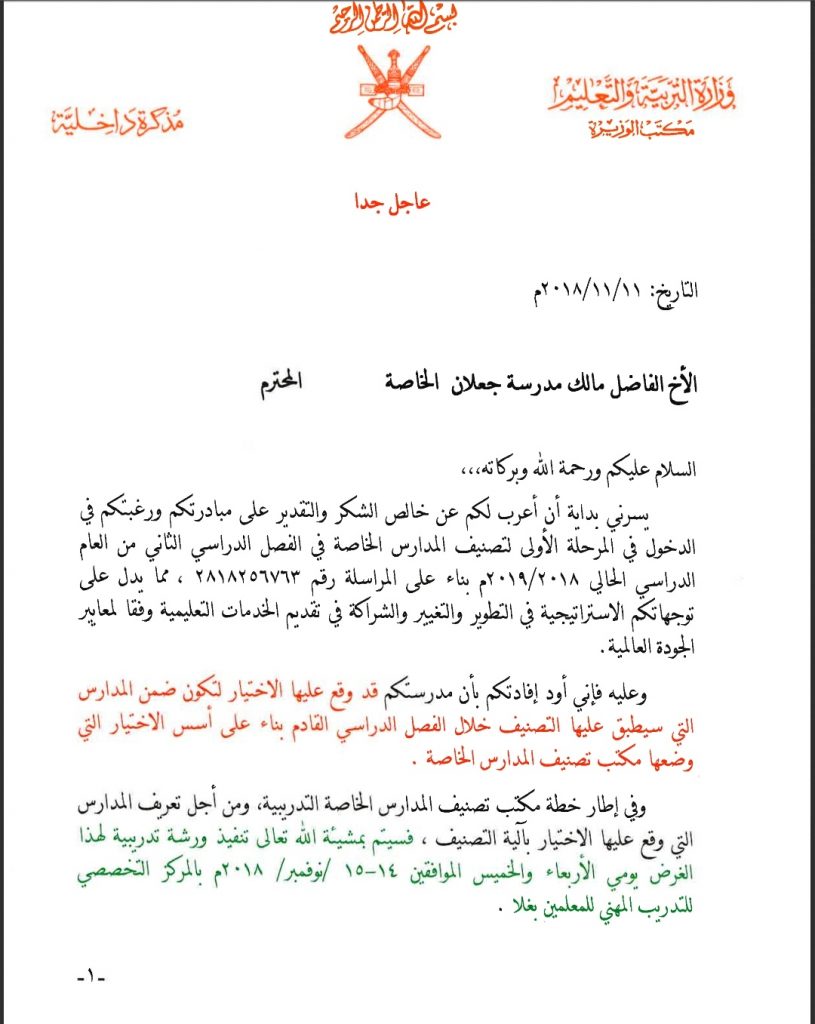 بسم الله الرحمن الرحيم
وزارة التربية والتعليم
مكتب الوزيرة
مذكرة داخلية
عاجل جدا
التاريخ: ٢٠١٨/١١/١١م
الأخ الفاضل مالك مدرسة جعلان الخاصة المحترم
السلام عليكم ورحمة الله وبركاته،،،
يسرني بداية أن أعرب لكم عن خالص الشكر والتقدير على مبادرتكم ورغبتكم في
الدخول في المرحلة الأولى لتصنيف المدارس الخاصة في الفصل الدراسي الثاني من العام
الدراسي الحالي ٢٠١٩/٢٠١٨م بناء على المراسلة رقم ٢٨١٨٢٥٦٧٦٣ ، مما يدل على
توجهاتكم الاستراتيجية في التطوير والتغيير والشراكة في تقديم الخدمات التعليمية وفقا لمعايير
الجودة العالمية.
وعليه فإني أود إفادتكم بأن مدرستكم قد وقع عليها الاختيار لتكون ضمن المدارس
التي سيطبق عليها التصنيف خلال الفصل الدراسي القادم بناء على أسس الاختيار التي
وضعها مكتب تصنيف المدارس الخاصة .
وفي إطار خطة مكتب تصنيف المدارس الخاصة التدريبية، ومن أجل تعريف المدارس
التي وقع عليها الاختيار بآلية التصنيف ، فسيتم بمشيئة الله تعالى تنفيذ ورشة تدريبية لهذا
الغرض يومي الأربعاء والخميس الموافقين ١٤-١٥ /نوفمبر/ ٢٠١٨م بالمركز التخصصي
للتدريب المهني للمعلمين بغلا .
-١-